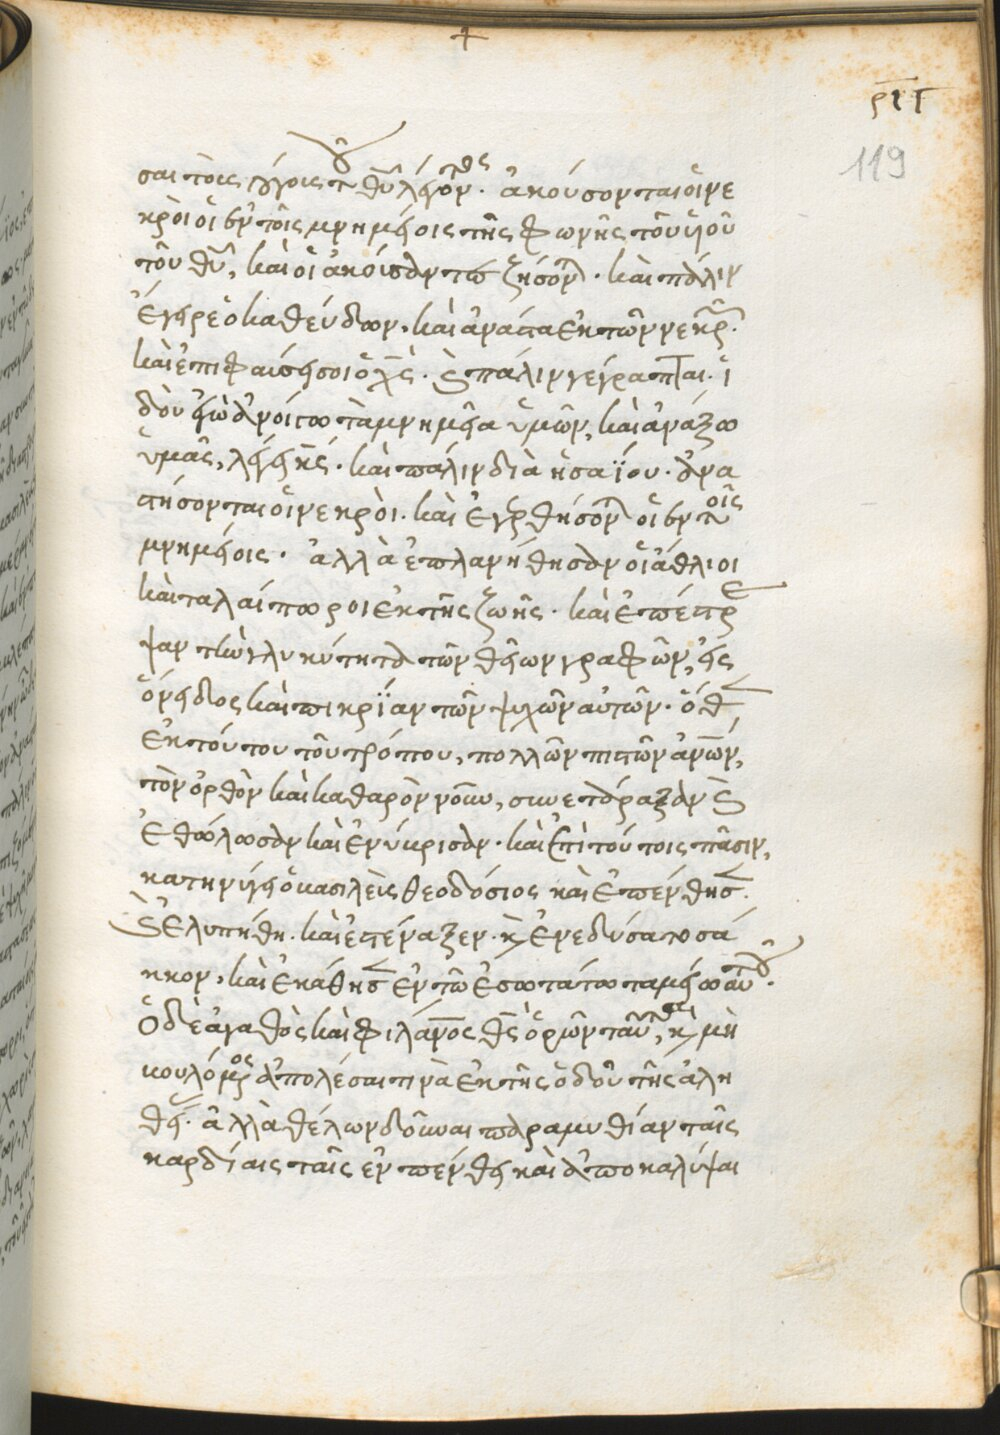 +
ριγ
119
σαι τοῖς λόγοις τοῦ θῦ λέγοντος. ἀκούσονται οἱ νε
κροὶ οἱ ἐν τοῖς μνημείοις τῆς φωνῆς τοῦ υἱοῦ
τοῦ θῦ, καὶ οἱ ἀκούσαντες ζήσονται. καὶ πάλιν
ἔγειρε ὁ καθεύδων, καὶ ἀνάστα ἐκ τῶν νεκρῶν.
καὶ ἐπιφαύσει σοι ὁ χς. καὶ πάλιν γέγραπται. ἰ
δοὺ ἐγὼ ἀνοίγω τὰ μνημεῖα ὑμῶν, καὶ ἀνάξω
ὑμᾶς, λέγει κς. καὶ πάλιν διὰ ἡσαΐου. ἀνα
στήσονται οἱ νεκροὶ. καὶ ἐγερθήσονται οἱ ἐν τοῖς
μνημείοις. ἀλλὰ ἐπλανήθησαν οἱ ἄθλιοι
καὶ ταλαίπωροι ἐκ τῆς ζωῆς. καὶ ἐπέστρε
ψαν τὴν γλυκύτητα τῶν θείων γραφῶν, εἰς
ὄνειδος καὶ πικρΐαν τῶν ψυχῶν αὐτῶν. ὅθεν
ἐκ τούτου τοῦ τρόπου, πολλῶν πιστῶν ἀνῶν,
τὸν ὀρθὸν καὶ καθαρὸν νοῦν, συνετάραξαν καὶ
ἐθόλωσαν καὶ ἐνύκρισαν. καὶ ἐπὶ τούτοις πᾶσιν,
κατηγγ ὁ βασιλεὺς θεοδόσιος καὶ ἐπένθησεν.
καὶ ἐλυπήθη. καὶ ἐστέναξεν. καὶ ἐνεδύσατο σά
κκον, καὶ ἐκάθησεν ἐν τῶ ἐσωτάτω ταμείω αὐτοῦ.
Ὁ δὲ ἀγαθὸς καὶ φιλανος θς ὁρῶν ταῦτα, καὶ μὴ
βουλόμενος ἀπολέσαι τινὰ ἐκ τῆς ὁδοῦ τῆς ἀλη
θείας. ἀλλὰ θέλων δοῦναι παραμυθίαν ταῖς
καρδίαις ταῖς ἐν πένθει καὶ ἀποκαλύψαι